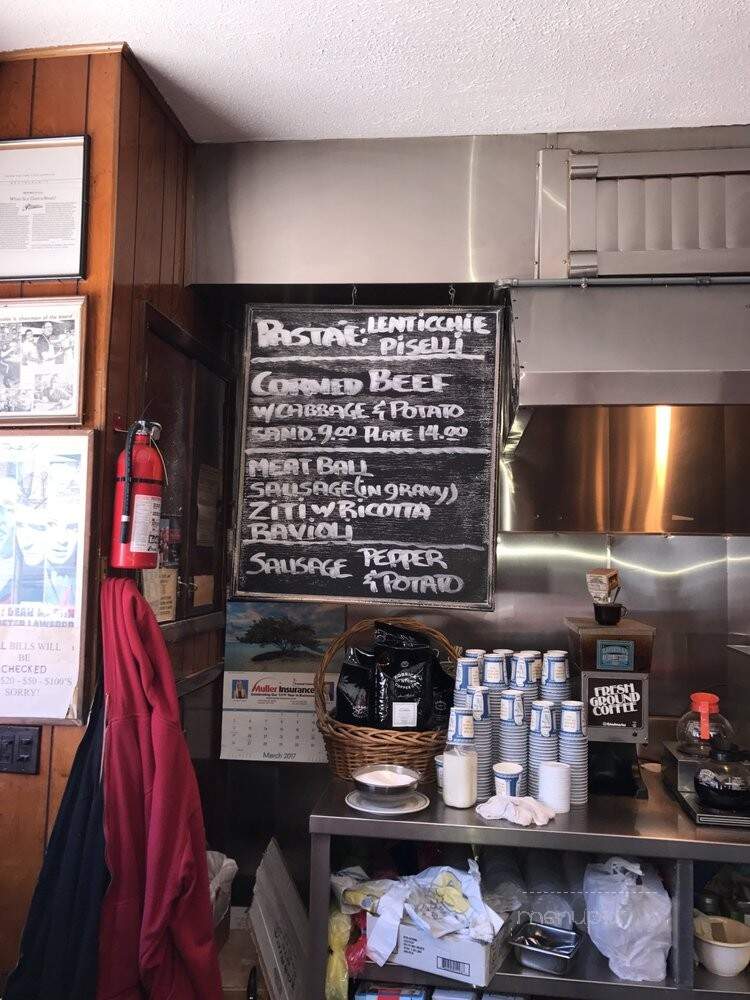 PASTA E: LENTICCHIE
PISELLI
CORNED BEEF
W/CABBAGE & POTATO
SAND. 9.00 PLATE 14.00
MEAT BALL
SAUSAGE (in gravy)
ZITI W RICOTTA
RAVIOLI
SAUSAGE PEPPER
& POTATO
BILLS WILL
BE
CHECKED
$20 - $50 - $100'S
SORRY!
Muller Insurance
March 2017
FRESH
GROUND
COFFEE
menupix